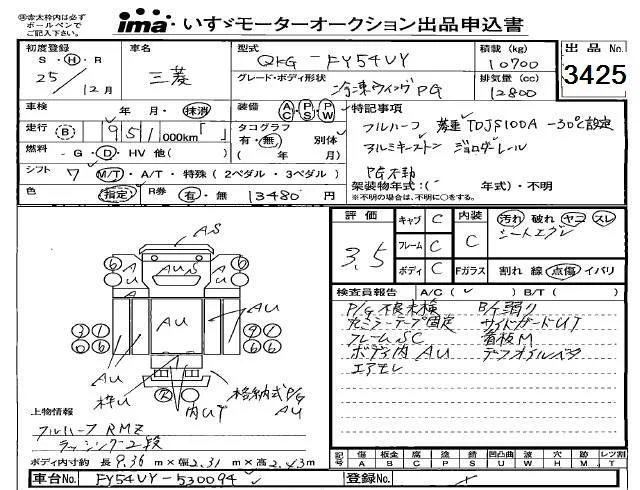 ※赤太枠内は必ず
ボールペンで
ご記入下さい。
ima いすゞモーターオークション出品申込書
初度登録
S・H・R
25/12月
車名
三菱
型式
QKG-FY54VY
積載(kg)
10700
出品No.
3425
グレード・ボディ形状
冷凍ウィング PG
排気量(cc)
12800
車検
年 月・抹消
装備 AC・PS・PW
特記事項
走行 (B) 951 000km「 」
タコグラフ
有・無 別体
( 年 月)
フルハーフ 菱重TDJS100A -30℃設定
アルミキーストン ジョロダーレール
PG不動
燃料 ・G・D・HV 他( )
シフト 7 M/T・A/T・特殊(2ペダル・3ペダル)
架装物年式:( 年式)・不明
※不明の場合は、不明に○をする。
色 (指定) R券 有・無 13480円
評価
3.5
キャブ C
フレーム C
ボディ C
内装
C
Fガラス
汚れ 破れ ヤコ スレ
シートエグレ
割れ 線 点傷 イバリ
検査員報告 A/C( ✓ ) B/T( )
P/G 不良未検 B/T漏り
灯ミラーテープ固定 サイドガードUT
フレームSC 看板M
ボディ内AU デフオイルベタ
エアモレ
AS
A U
AUS
A U
A
AU
AU
AU
AU
枠U
内UT
格納式P/G
AU
上物情報
フルハーフ RMZ
ラッシング2段
ボディ内寸約 長 9.36 m×幅 2.31 m×高 2.43 m
記号 傷 板金 腐 塗 錆 凹凸曲 波 穴 跡 レツ割
A B C P S U W H M T
車台No. FY54VY-530094
登録No.